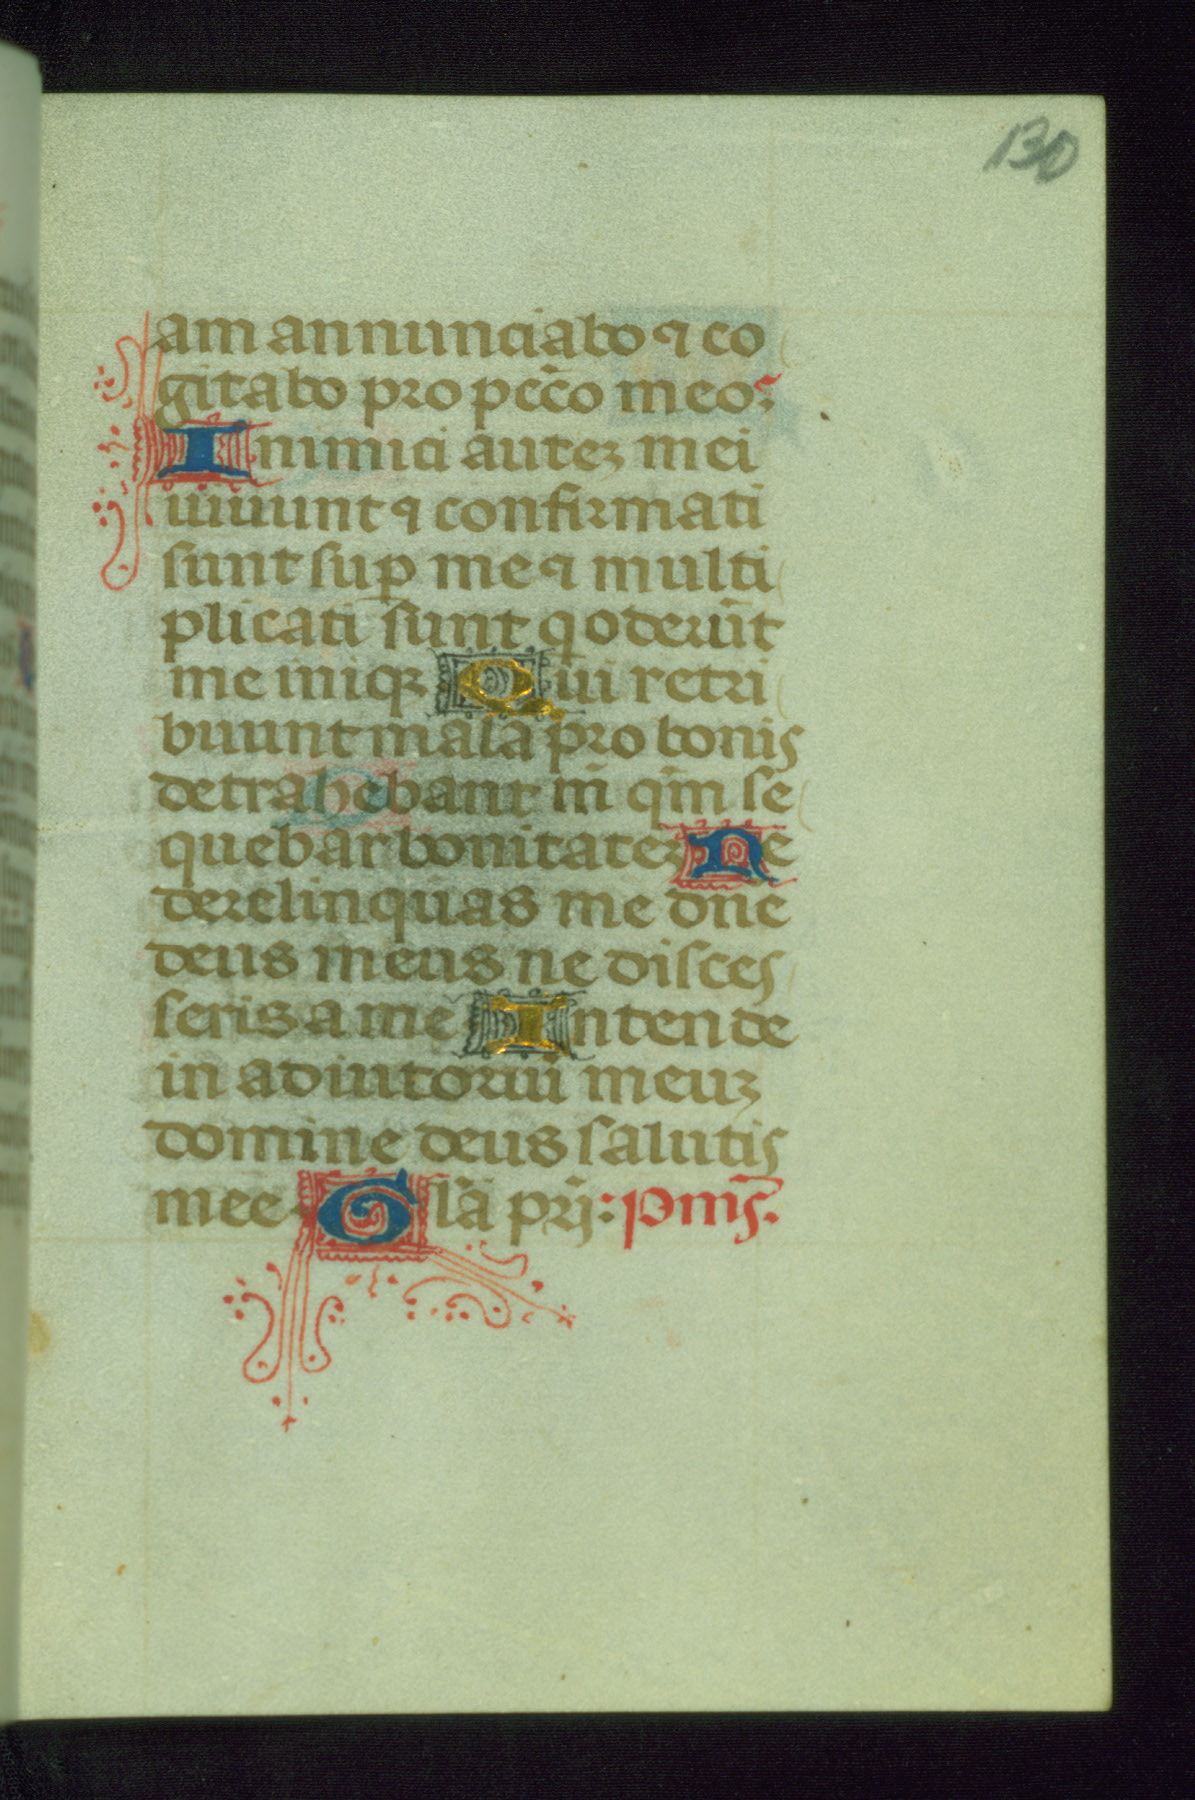 130
am annunciabo ⁊ co
gitabo pro pecc̄o meo;
Inimici auteʒ mei
uiuunt ⁊ confirmati
sunt sup̱ me ⁊ multi
plicati sunt q̱ oderūt
me iniqꝝ Qui retri
buunt mala pro bonis
detrahebant m̄ qm̄ se
quebar bonitateʒ Ne
derelinquas me dne
deus meus ne disces
seris a me Intende
in adiutoriū meuʒ
domine deus salutis
mee Gla̅ pr̄j: pmȳs.